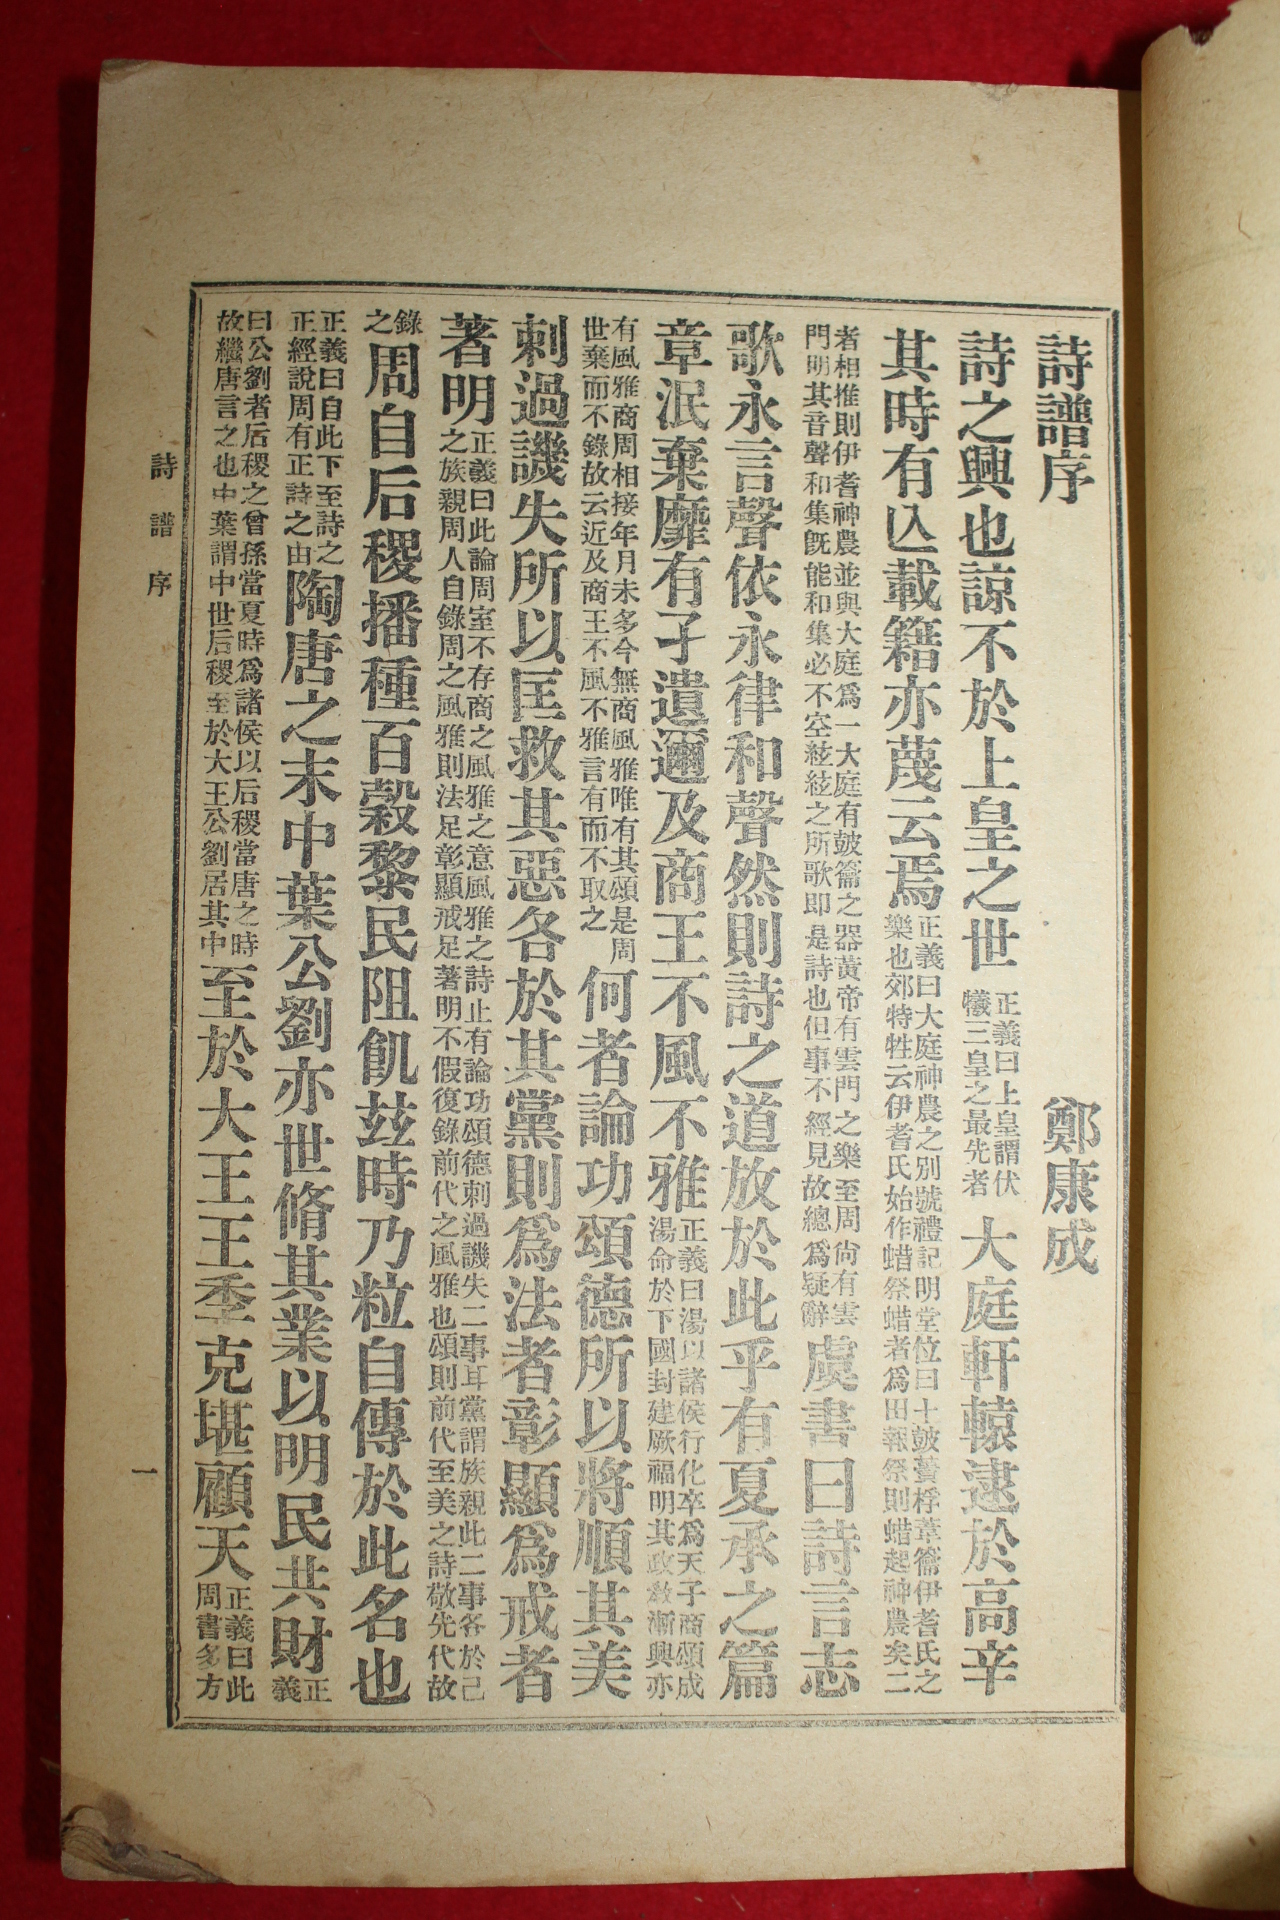 詩譜序　鄭康成
詩之興也諒不於上皇之世正義曰上皇謂伏犧三皇之最先者大庭軒轅逮於高辛
其時有亾載籍亦蔑云焉正義曰大庭神農之別號禮記明堂位曰土皷蕢桴葦籥伊耆氏之樂也郊特牲云伊耆氏始作蜡祭蜡者爲田報祭則蜡起神農矣二
者相推則伊耆神農並與大庭爲一大庭有皷籥之器黃帝有雲門之樂至周尙有雲門明其音聲和集旣能和集必不空絃絃之所歌卽是詩也但事不經見故總爲疑辭虞書曰詩言志
歌永言聲依永律和聲然則詩之道放於此乎有夏承之篇
章泯棄靡有孑遺邇及商王不風不雅正義曰湯以諸侯行化卒爲天子商頌成湯命於下國封建厥福明其政敎漸興亦
有風雅商周相接年月未多今無商風雅唯有其頌是周世棄而不錄故云近及商王不風不雅言有而不取之何者論功頌德所以將順其美
刺過譏失所以匡救其惡各於其黨則爲法者彰顯爲戒者
著明正義曰此論周室不存商之風雅之意風雅之詩止有論功頌德刺過譏失二事耳黨謂族親此二事各於己之族親周人自錄周之風雅則法足彰顯戒足著明不假復錄前代之風雅也頌則前代至美之詩敬先代故
錄之周自后稷播種百穀黎民阻飢茲時乃粒自傳於此名也
正義曰自此下至詩之正經說周有正詩之由陶唐之末中葉公劉亦世脩其業以明民共財正義
曰公劉者后稷之曾孫當夏時爲諸侯以后稷當唐之時故繼唐言之也中葉謂中世后稷至於大王公劉居其中至於大王王季克堪顧天正義曰此周書多方
詩譜序　一